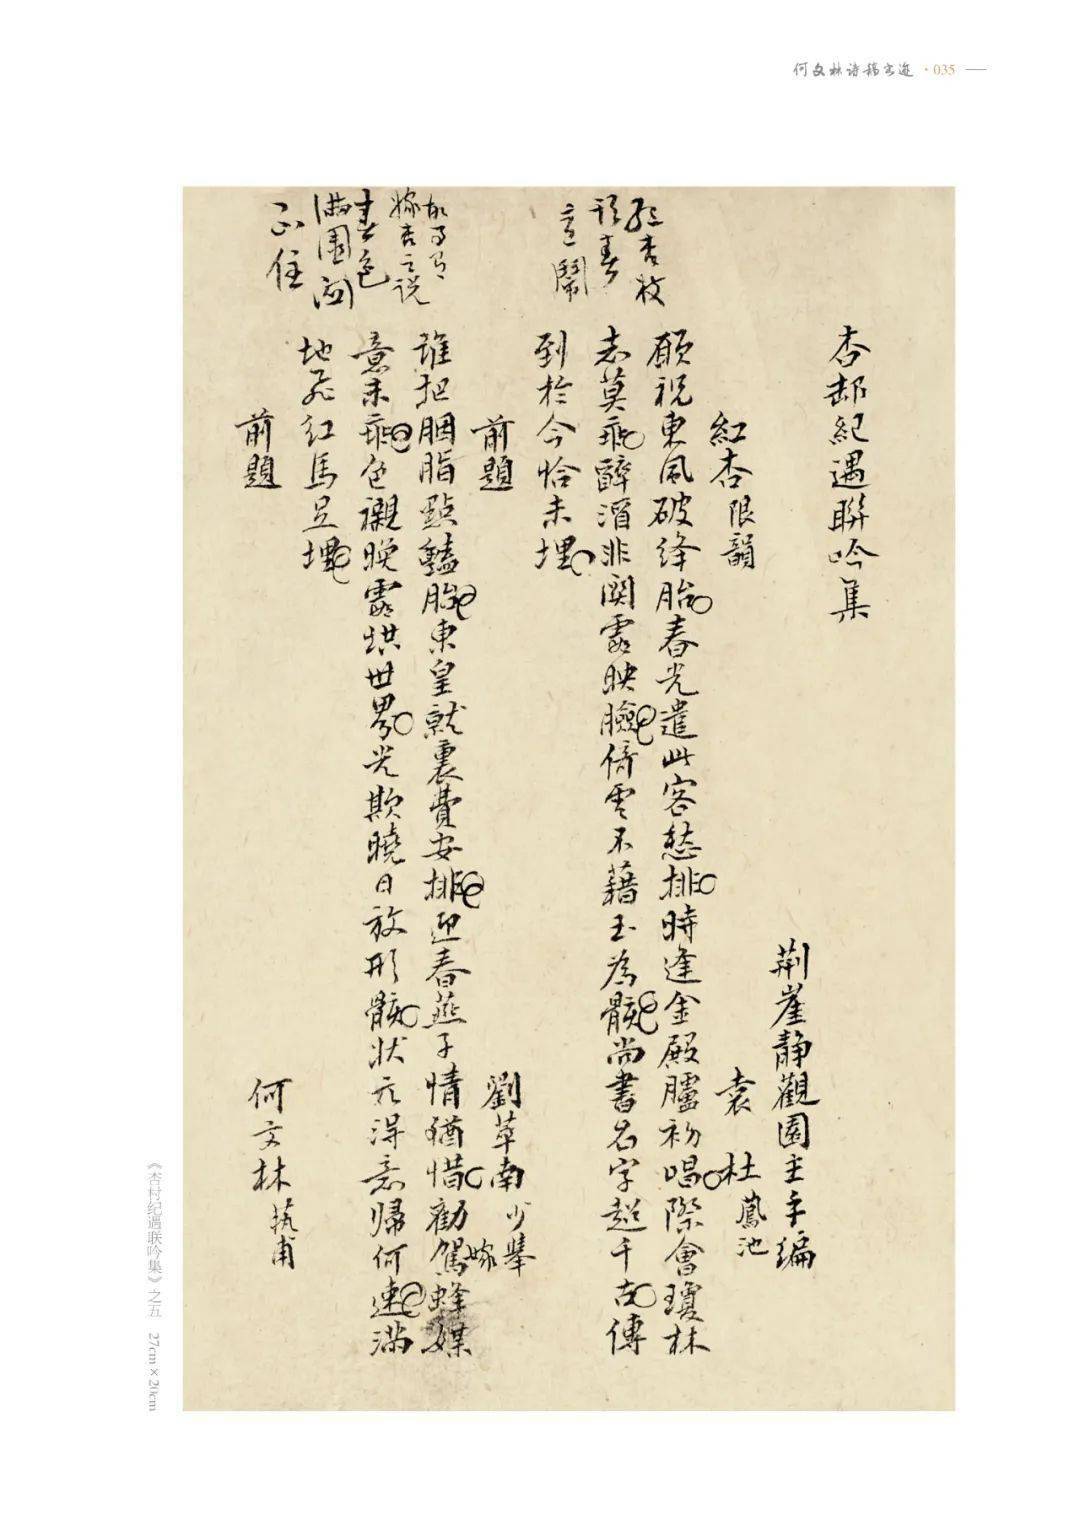 何文林诗稿书迹 · 035
杏邨紀遇聯吟集
荆崖靜觀園主手编
紅杏限韻
袁杜鳳池
願祝東風破绛胎春光遣此客愁排時逢金殿臚初唱際會瓊林
志莫乖醉酒非関霞映臉倚雲不藉玉為骸尚書名字超千古傳
到於今恰未埋
红杏枝
頭春
意鬧
前題
劉草南少舉
誰把胭脂點豔胎東皇就裏費安排迎春燕子情猶惜勸駕蜂媒
嫁
意未乖色襯晚霞烘世界光欺曉日放形骸状元得意歸何速滿
地飛红馬足埋
故事有
嫁杏之说
春色
满園関
不住
前題
何文林藝甫
《杏村纪遇联吟集》之五 27cm×20cm